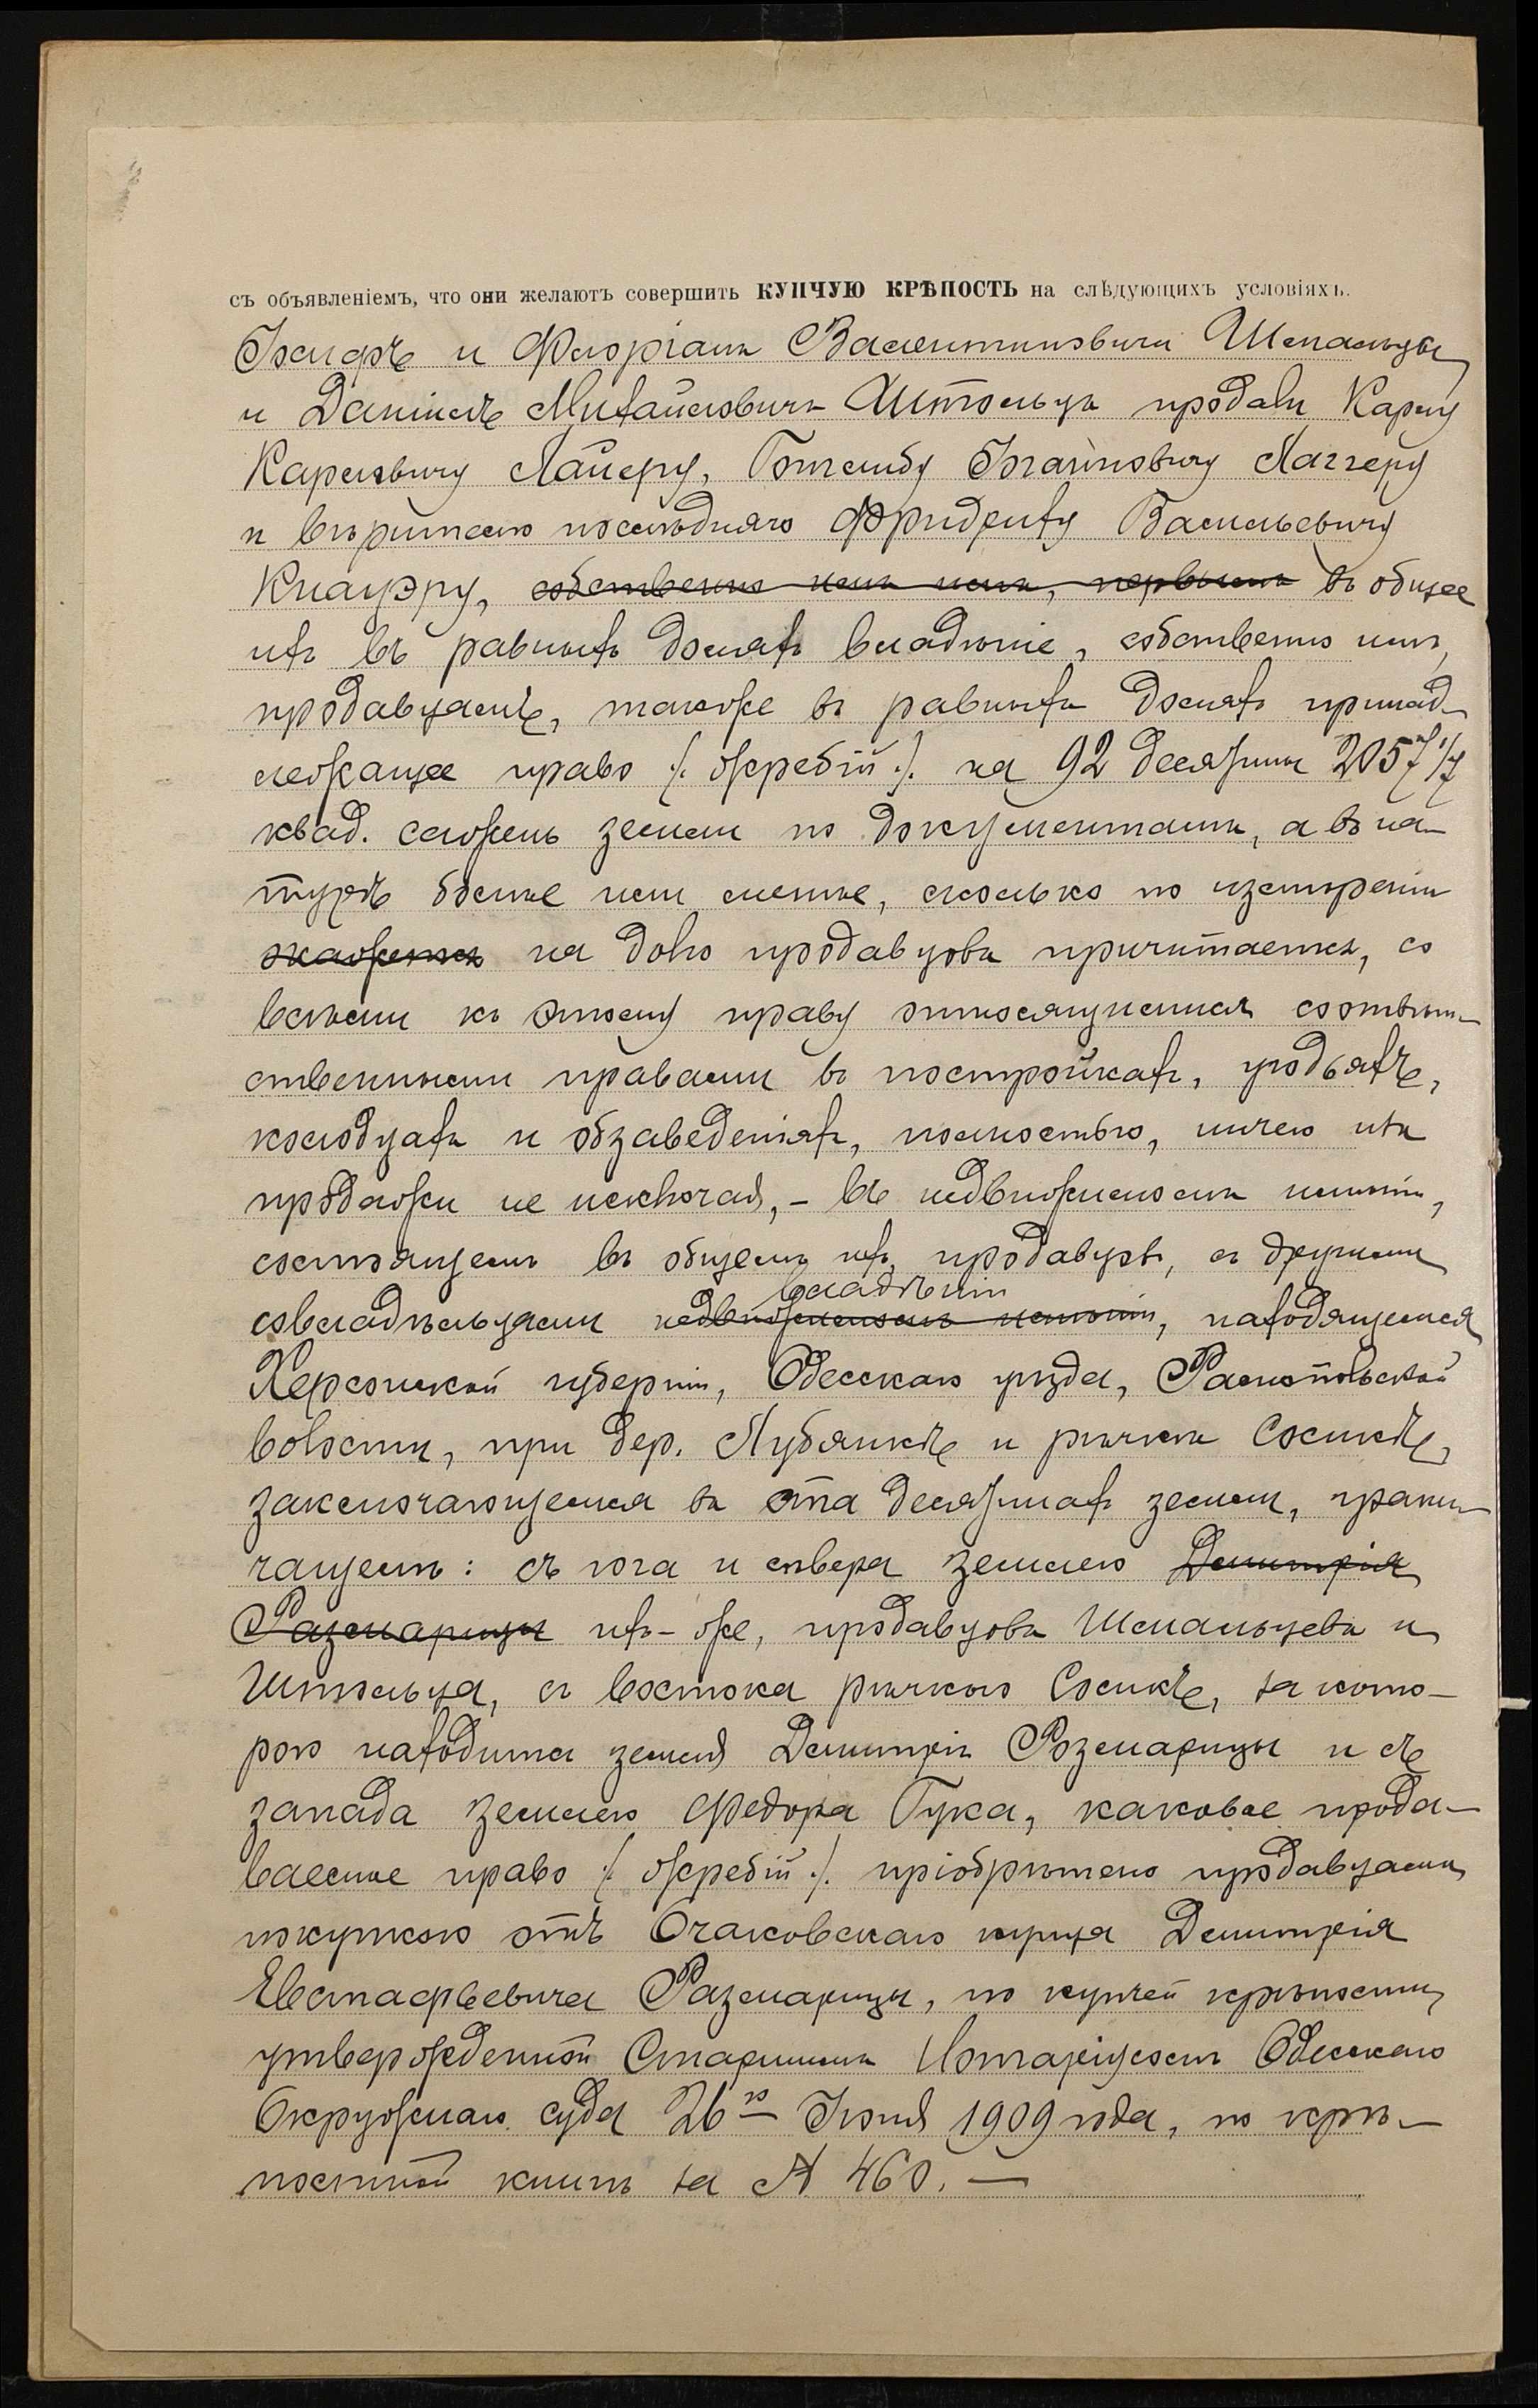 съ объявленіемъ, что они желаютъ совершить КУПЧУЮ КРѢПОСТЬ на слѣдующихъ условіяхъ.
и Флоріанъ Валентиновичи Шмальцы
и Даніилъ Михайловичъ Штольцъ продали Карлу
Карловичу Лайеру, Готлибу Лаггеру
и вѣрителю послѣдняго Фридриху Васильевичу
Кнауэру, собственно имъ въ общее
ихъ въ равныхъ доляхъ владѣніе, собственно имъ,
продавцамъ, также въ равныхъ доляхъ принад-
лежащее право /. жребій ./. на 92 десятины 2057 1/7
квад. сажень земли по документамъ, а въ на-
турѣ болѣе или менѣе, сколько по измѣреніи
окажется на долю продавцовъ причитается, со
всѣми къ этому праву относящимися соотвѣт-
ственными правами въ постройкахъ, угодьяхъ,
колодцахъ и обзаведеніяхъ, полностью, ничего изъ
продажи не исключая, - въ недвижимомъ имѣніи,
состоящемъ въ общемъ ихъ, продавцовъ, съ другими
владѣніи
совладѣльцами недвижимомъ имѣніи, находящемся
Херсонской губерніи, Одесскаго уѣзда, Раснопольской
волости, при дер. Лубянкѣ и рѣчкѣ Сосикѣ,
заключающемся въ ста десятинахъ земли, грани-
чащемъ: съ юга и сѣвера землею Димитрія
Размарицы ихъ-же, продавцовъ Шмальцевъ и
Штольца, съ востока рѣчкою Сосикѣ, за кото-
рою находится земля Димитрія Розмарицы и съ
запада землею Федора Гука, каковое прода-
ваемое право /. жребій ./. пріобрѣтено продавцами
покупкою отъ Очаковскаго купца Димитрія
Евстафьевича Размарицы, по купчей крѣпости,
утвержденной Старшимъ Нотаріусомъ Одесскаго
Окружнаго суда 26го Іюня 1909 года, по крѣ-
постной книгѣ за № 460. —